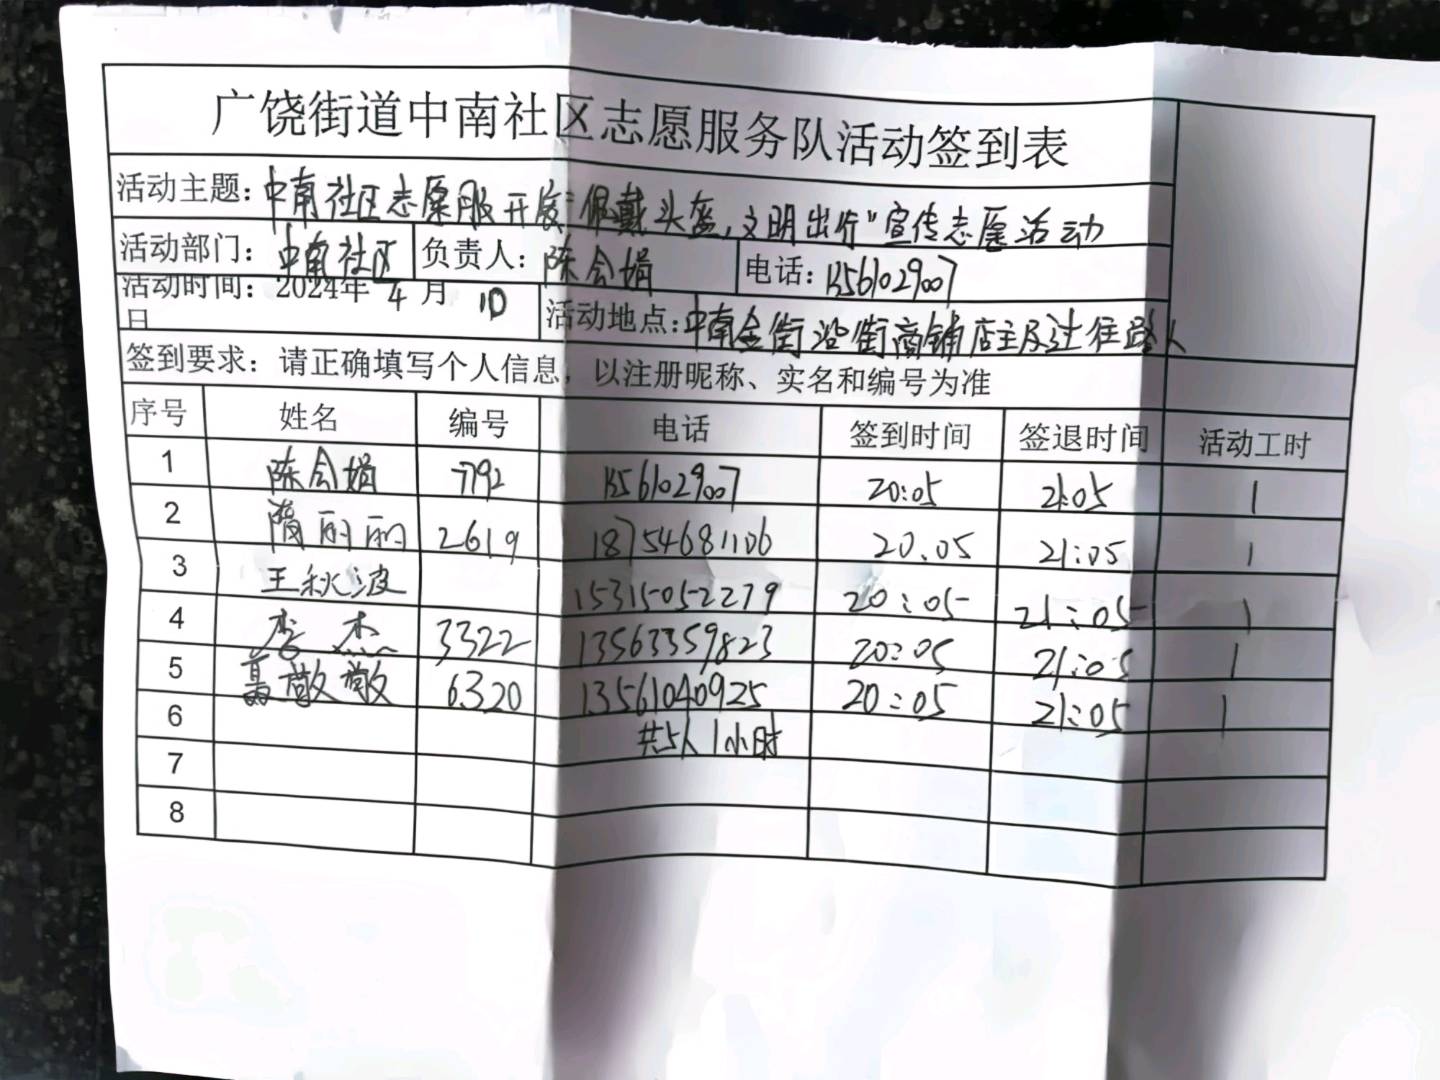 广饶街道中南社区志愿服务队活动签到表
活动主题：中南社区志愿服开展“佩戴头盔，文明出行”宣传志愿活动
活动部门：中南社区 负责人：陈会娟 电话：15561029007
活动时间：2024年 4 月 10
日 活动地点：中南金街沿街商铺店主及过往路人
签到要求：请正确填写个人信息，以注册昵称、实名和编号为准
序号 姓名 编号 电话 签到时间 签退时间 活动工时
1 陈会娟 7792 15561029007 20:05 21:05 1
2 隋丽丽 2619 18754681106 20:05 21:05 1
3 王秋波 15315052279 20:05 21:05 1
4 李杰 3322 13563359823 20:05 21:05 1
5 聂敬敬 6320 13561040925 20:05 21:05 1
6 共5人 1小时
7
8